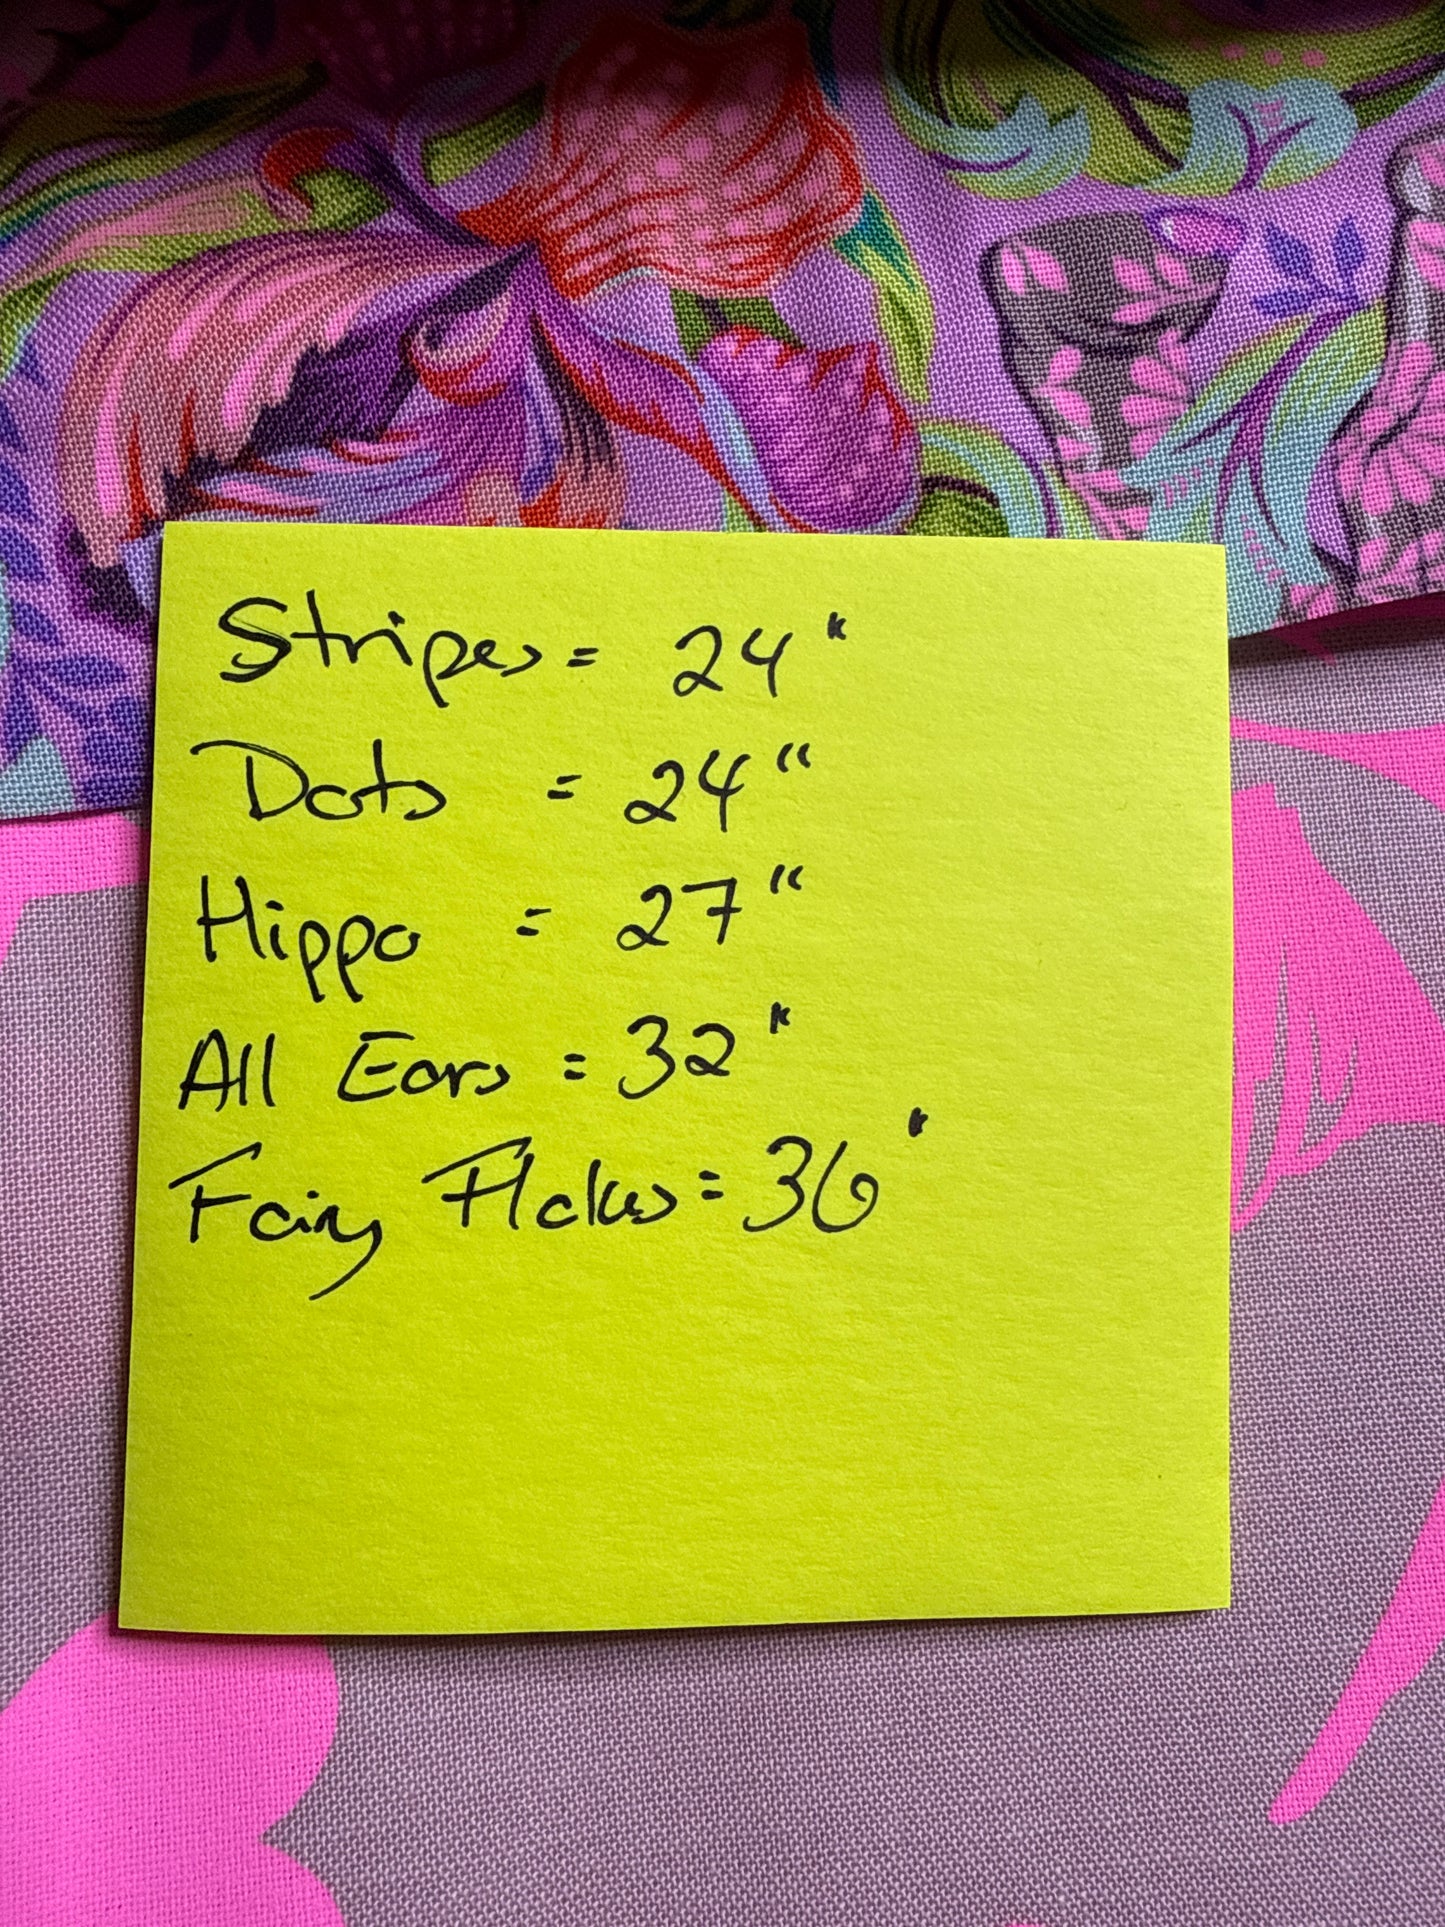 Stripes = 24"
Dots = 24"
Hippo = 27"
All Ears = 32"
Fairy Flakes = 36"